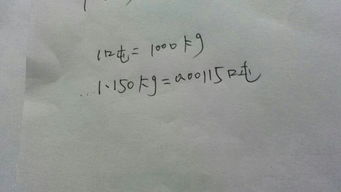 1吨=1000kg
1.150kg=0.00115吨